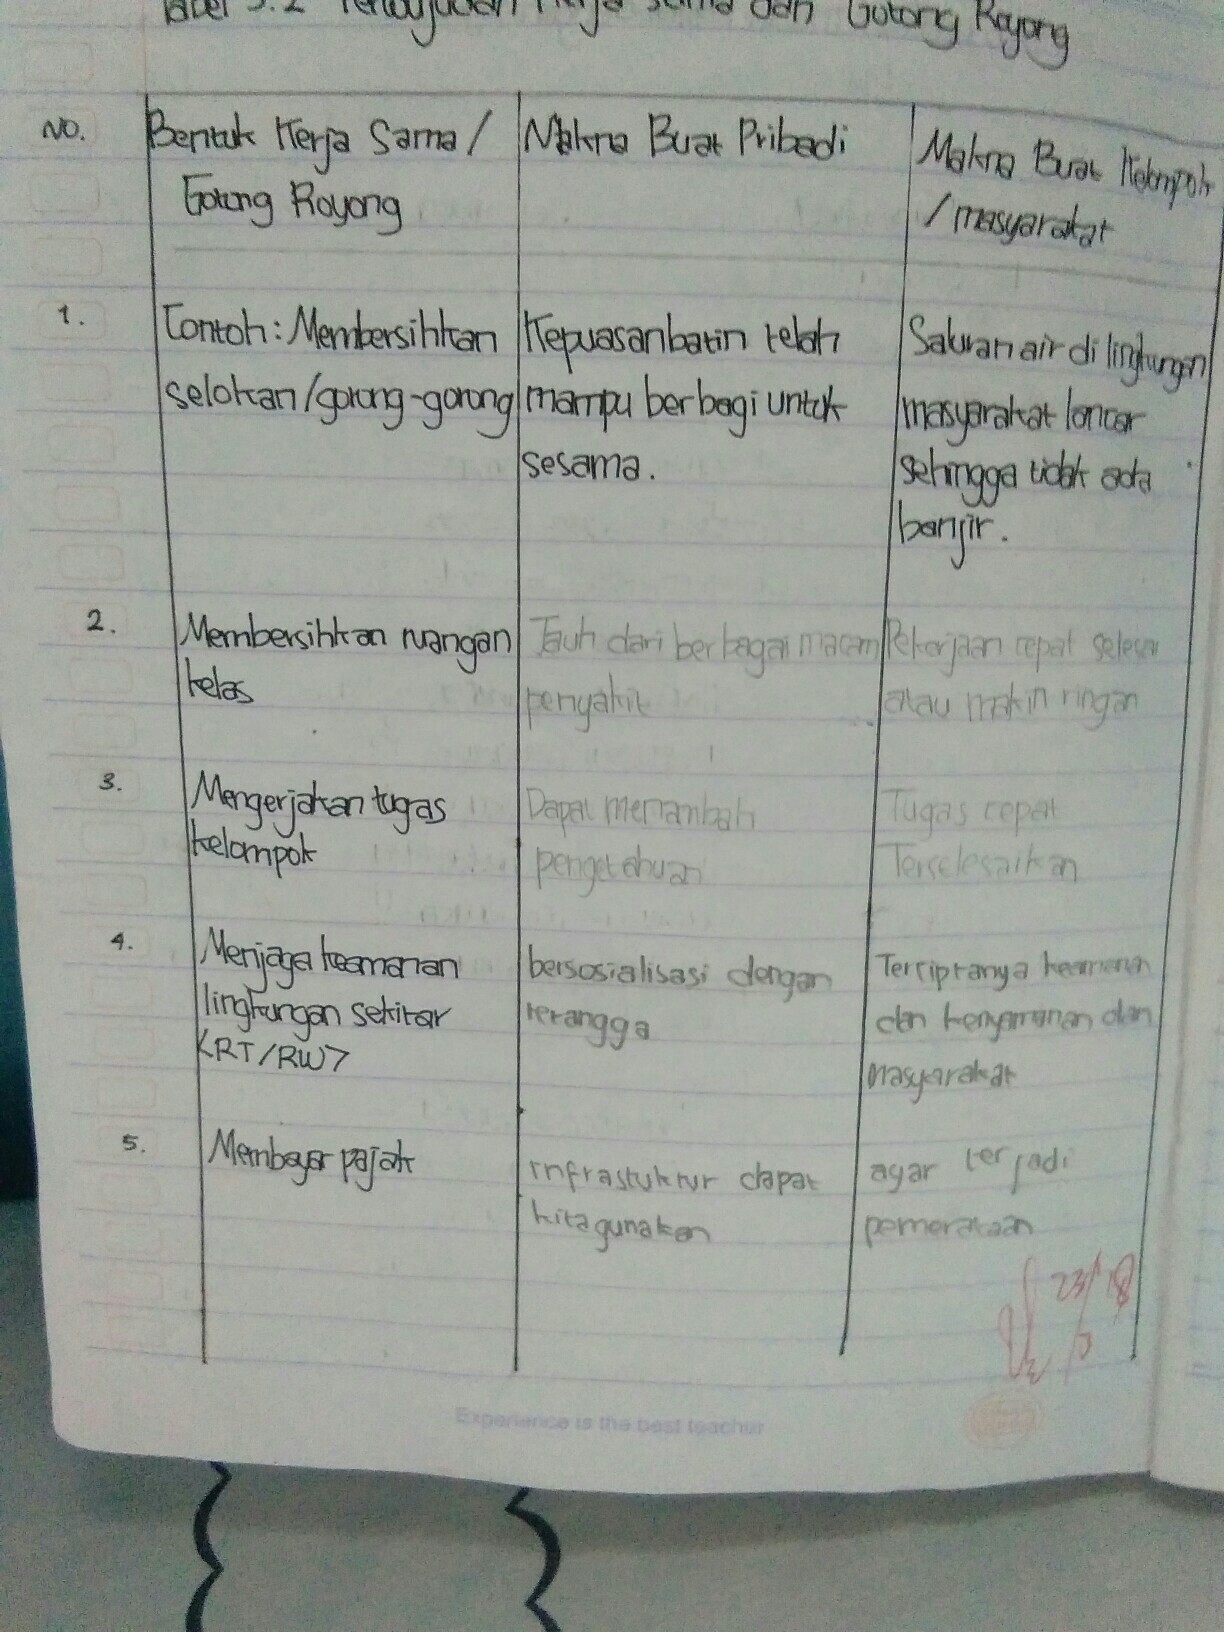 Tabel 5.2 Perwujudan Kerja Sama dan Gotong Royong
NO.
Bentuk Kerja Sama /
Gotong Royong
Makna Buat Pribadi
Makna Buat Kelompok
/ masyarakat
1.
Contoh: Membersihkan
selokan/gorong-gorong
Kepuasan batin telah
mampu berbagi untuk
sesama.
Saluran air di lingkungan
masyarakat lancar
sehingga tidak ada
banjir.
2.
Membersihkan ruangan
kelas
Jauh dari berbagai macam
penyakit
Pekerjaan cepat selesai
atau makin ringan
3.
Mengerjakan tugas
kelompok
Dapat menambah
pengetahuan
Tugas cepat
Terselesaikan
4.
Menjaga keamanan
lingkungan sekitar
<RT/RW>
bersosialisasi dengan
tetangga
Terciptanya keamanan
dan kenyamanan dan
masyarakat
5.
Membayar pajak
infrastuktur dapat
kita gunakan
agar terjadi
pemerataan
Experience is the best teacher